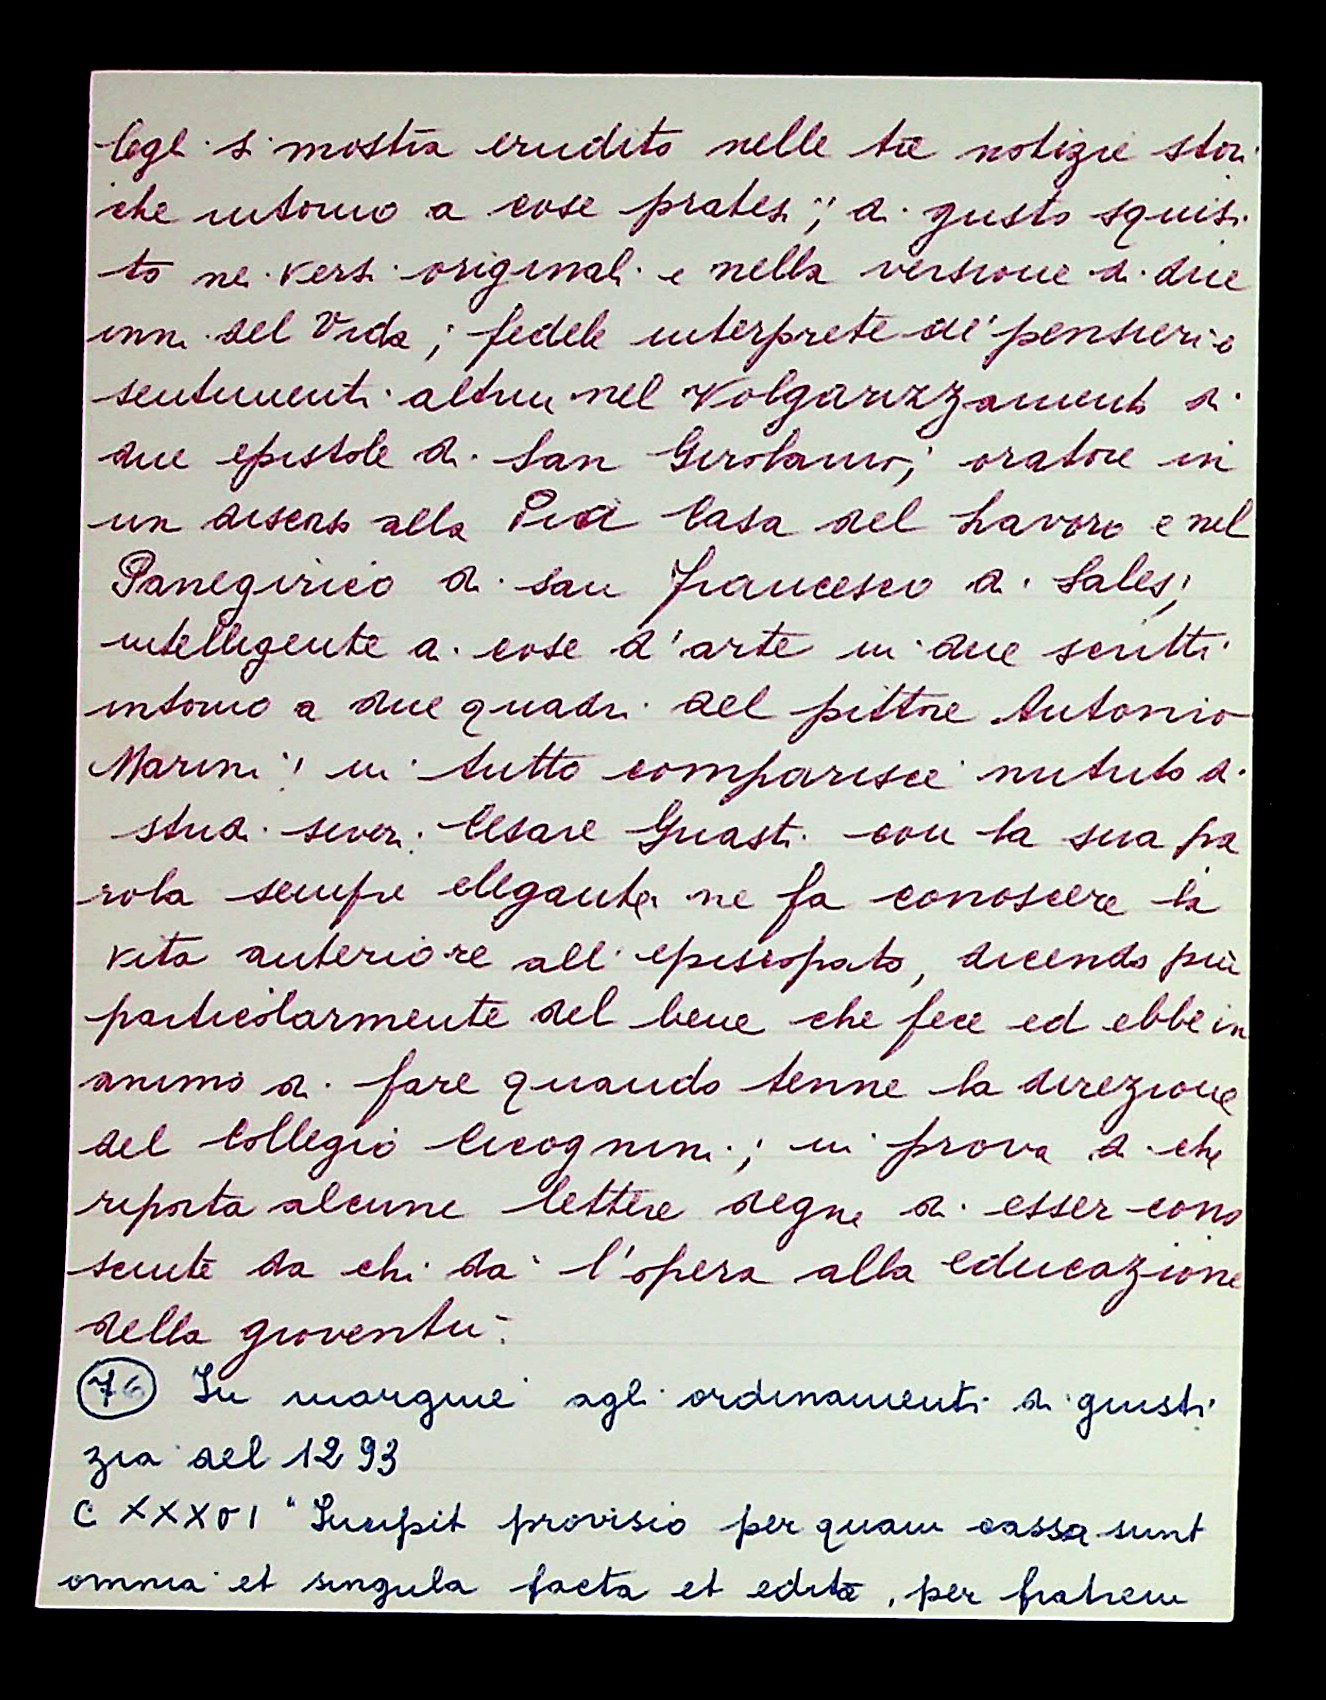 Egli si mostra erudito nelle tre notizie stori
che intorno a cose pratesi; di gusto squisi
to nei versi originali e nella versione di due
inni del Vida; fedele interprete de' pensieri e
sentimenti altrui nel Volgarizzamento di
due epistole di San Girolamo; oratore in
un discorso alla Pia Casa del Lavoro e nel
Panegirico di san Francesco di Sales;
intelligente di cose d'arte in due scritti
intorno a due quadri del pittore Antonio
Marini; in tutto comparisce nutrito di
studi severi. Cesare Guasti con la sua pa
rola sempre elegante ne fa conoscere la
vita anteriore all'episcopato, dicendo più
particolarmente del bene che fece ed ebbe in
animo di fare quando tenne la direzione
del Collegio Cicognini; in prova di che
riporta alcune lettere degne di esser cono
sciute da chi dà l'opera alla educazione
della gioventù.
76 In margine agli ordinamenti di giusti
zia del 1293
C XXXVI "Incipit provisio per quam cassa sunt
omnia et singula facta et edita, per fratrem